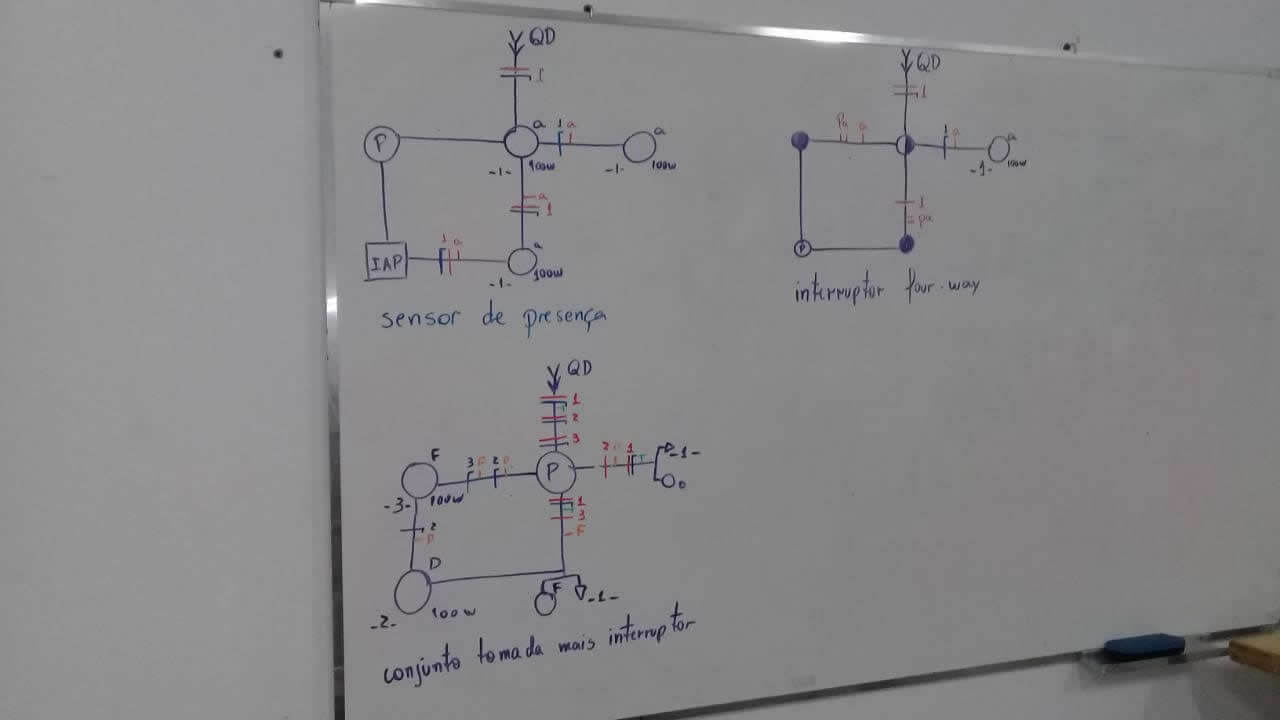 QD
1
P
a
1 a
a
-1-
100w
-1-
100w
a
1
a
IAP
1 a
-1-
100w
sensor de presença
QD
1
Pa a
1 a
a
-1-
100w
1
Pa
P
interruptor four-way
QD
1
2
3
F
3 F 2 D
P
2 D 1
-1-
D
-3-
100w
1
3
F
2
D
D
-2-
100w
F
-1-
conjunto tomada mais interruptor